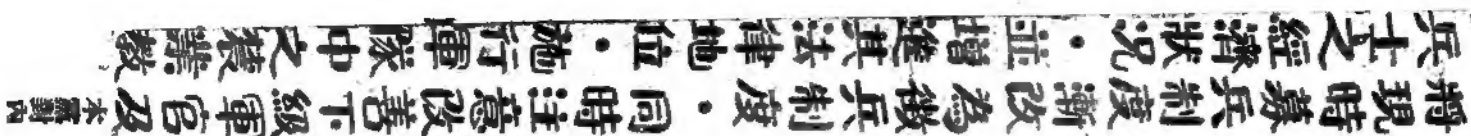 本黨對內
將現時募兵制度漸改為徵兵制度・同時注意改善下級軍官及
兵士之經濟狀況・並增進其法律地位・施行軍隊中之農業教